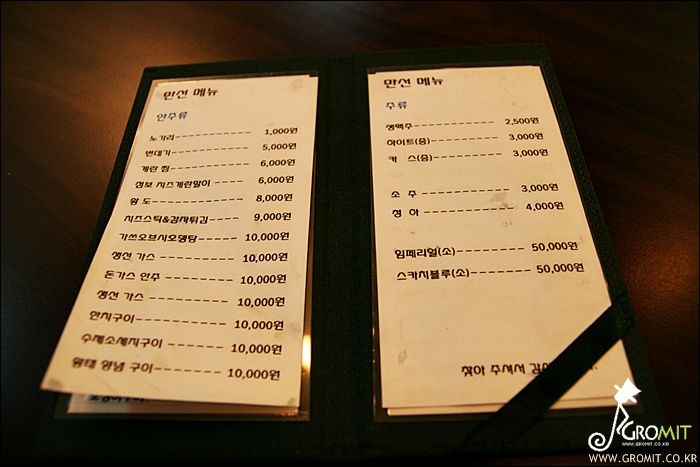 만선 메뉴
안주류
노가리 1,000원
번데기 5,000원
계란 찜 6,000원
점보 치즈계란말이 6,000원
황 도 8,000원
치즈스틱&감자튀김 9,000원
가쓰오브시오뎅탕 10,000원
생선 가스 10,000원
돈가스 안주 10,000원
생선 가스 10,000원
한치구이 10,000원
수제소세지구이 10,000원
황태 양념 구이 10,000원
만선 메뉴
주류
생맥주 2,500원
하이트(중) 3,000원
카 스(중) 3,000원
소 주 3,000원
청 하 4,000원
임페리얼(소) 50,000원
스카치블루(소) 50,000원
찾아 주셔서
GROMIT
WWW.GROMIT.CO.KR
WWW.GROMIT.CO.KR